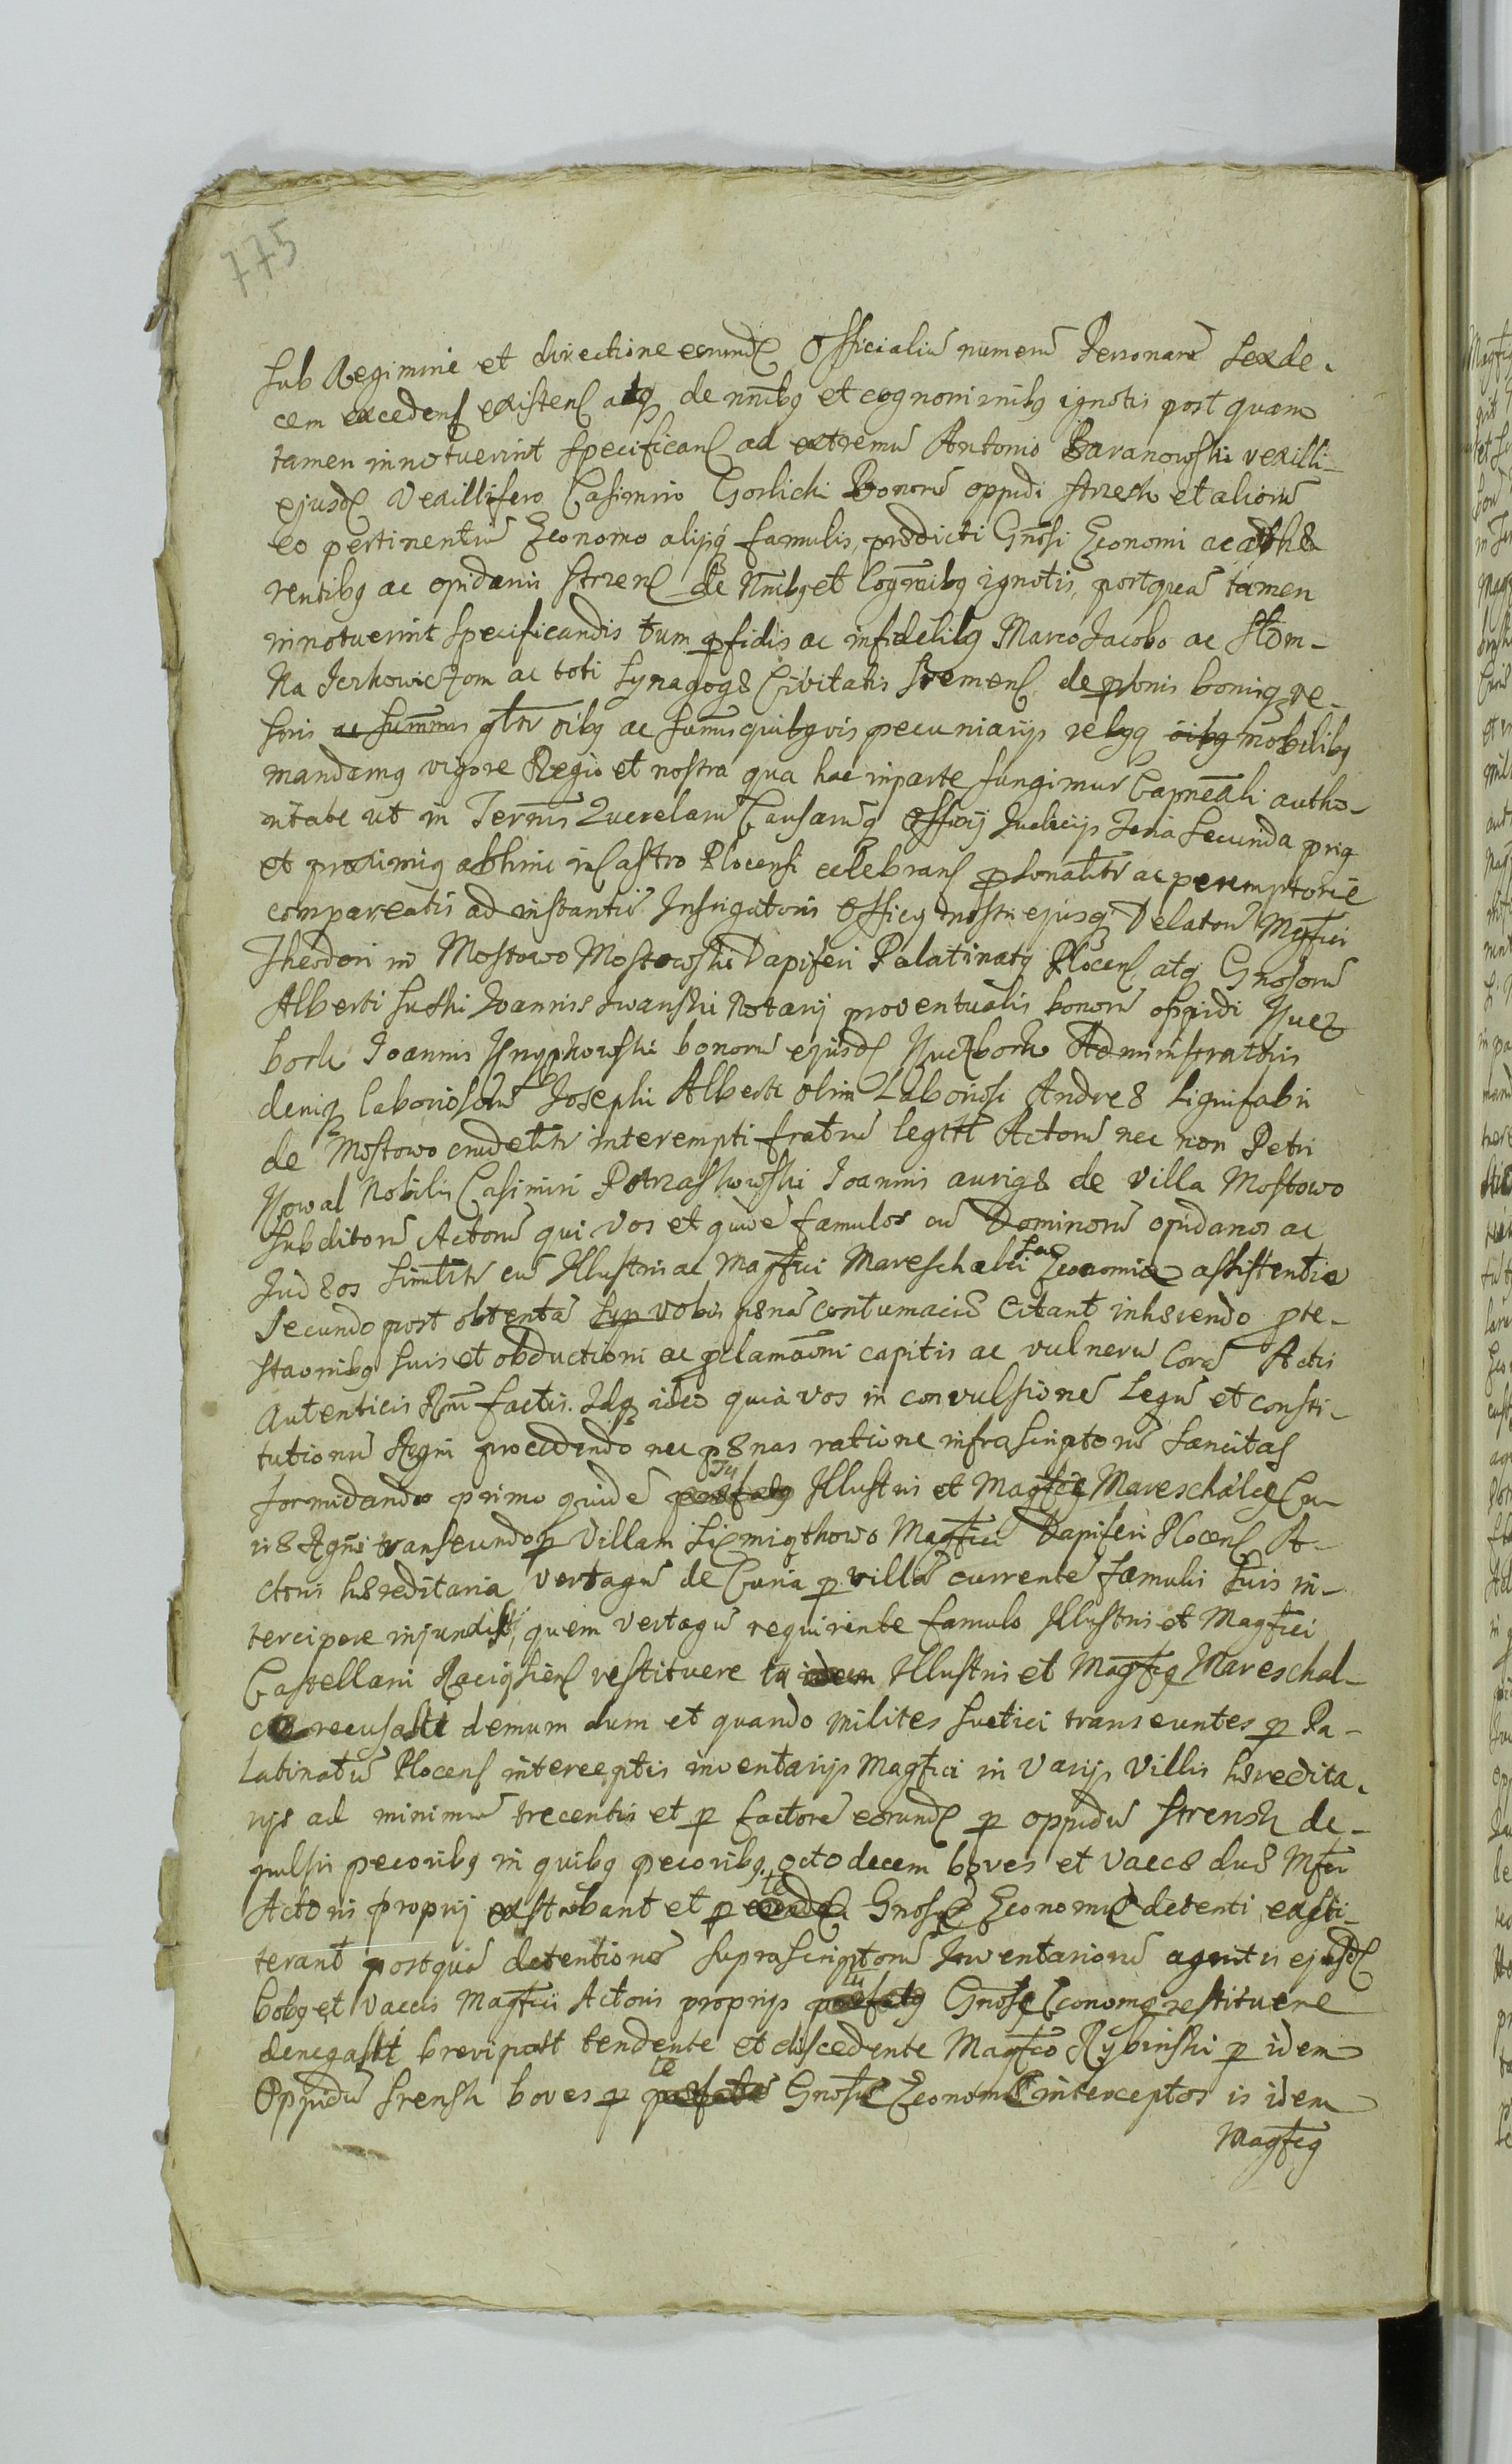 775
sub Regimine et directione eorund Officialiū numerū Personarū sexde-
cem excedens existens atq de nnibq et cognominibq ignotis post quam
tamen innotuerint specifican ad extremū Antonio Baranowski vexilli-
ejusd Vexillifero Casimiro Gorlicki Bonorū oppidi Strzesk et aliorū
eo pertinentiū Economo alijsq famulis prædicti Gnosi Economi ac adhæ
rentibq ac opidanis Strzen de Nnibq et Cognnibq ignotis, postquã tamen
innotuerint specificandis tum pfidis ac infidelibq Marco Jacobo ac
ac toti Synagogæ Civitatis de psonis bonisq ve-
stris ac summis gltr oibq ac sumis quibqvis pecuniarijs rebqq oibq mobilibq
mandamq vigore Regio et nostra qua hac in parte fungimur Capneali autho-
ritate ut in Terminis Querelarū Causarūq Officij Judicijs Feria Secunda priq
et proximiq abhinc in Castro Plocensi celebran psonalitr ac peremptorie
compareatis ad instantiã Instigatoris Officij nostri ejusq Delatorū Mgfici
Theodori in Mostowo Mostowski Dapiferi Palatinatq Plocen atq Gnosorū
Alberti Suski Joannis Iwanski Notarij proventualis bonorū oppidi Kucz
bork Joannis Knyphowski bonorū ejusd Kuczbork Administratoris
deniq laboriosorū Josephi Alberti olim Laboriosi Andreæ Lignifabri
de Mostowo crudelitr interempti fratrū legitt Actorū nec non Petri
Kowal Nobilis Casimiri Potrzaskowski Joannis aurigæ de villa Mostowo
subditorū Actorū qui vos et quidẽ famulos cū Dominorū opidanos ac
Judæos similitr cū Illustris ac Magfici Mareschalci Economia assistentia
Secundo post obtentã sup vobis pænã contumaciæ Citant inhærendo pte-
staonibq suis et obductioni ac pclamãoni capitis ac vulnerū Corã Actis
Autenticis Rnī factis. Idq ideo quia vos in convulsionẽ Legū et consti-
tutionū Regni procedendo nec pænas ratione infrascriptorū sancitas
formidando primo quidẽ præfatq Tu Illustris et Magficq Mareschalcq Cu-
riæ Rgni transeundo p Villam Magfici Dapiferi Plocen A-
ctoris hæreditaria vertagū de Curia p villã currentẽ famulis suis in-
tercipere injunxisti, quem vertagū requirente famulo Illustris et Magfici
Castellani Raciqzien restituere tu idem Illustris et Magficq Mareschal-
cq recusasti demum dum et quando milites Suetici transeuntes p Pa-
latinatū Plocen interceptis inventarijs Magfici in Varijs Villis hæredita-
rijs ad minimū trecentis et p factorẽ eorund p oppidū Strensk de-
pulsis pecoribq in quibq pecoribq octodecem boves et vaccæ duæ Mfici
Actoris proprij extrabant et p eund te Gnosū Economū detenti exsti-
terant postquã detentionẽ suprascriptorū Inventariorū agnitis ejusd
bobq et vaccis Magfici Actoris proprijs præfatq tu Gnosq Economq restituere
denegasti brevi post tendente et discedente Magfico Rybinski p idem
Oppidū Srensk boves p præfatū te Gnosū Economū interceptos is idem
Magficq